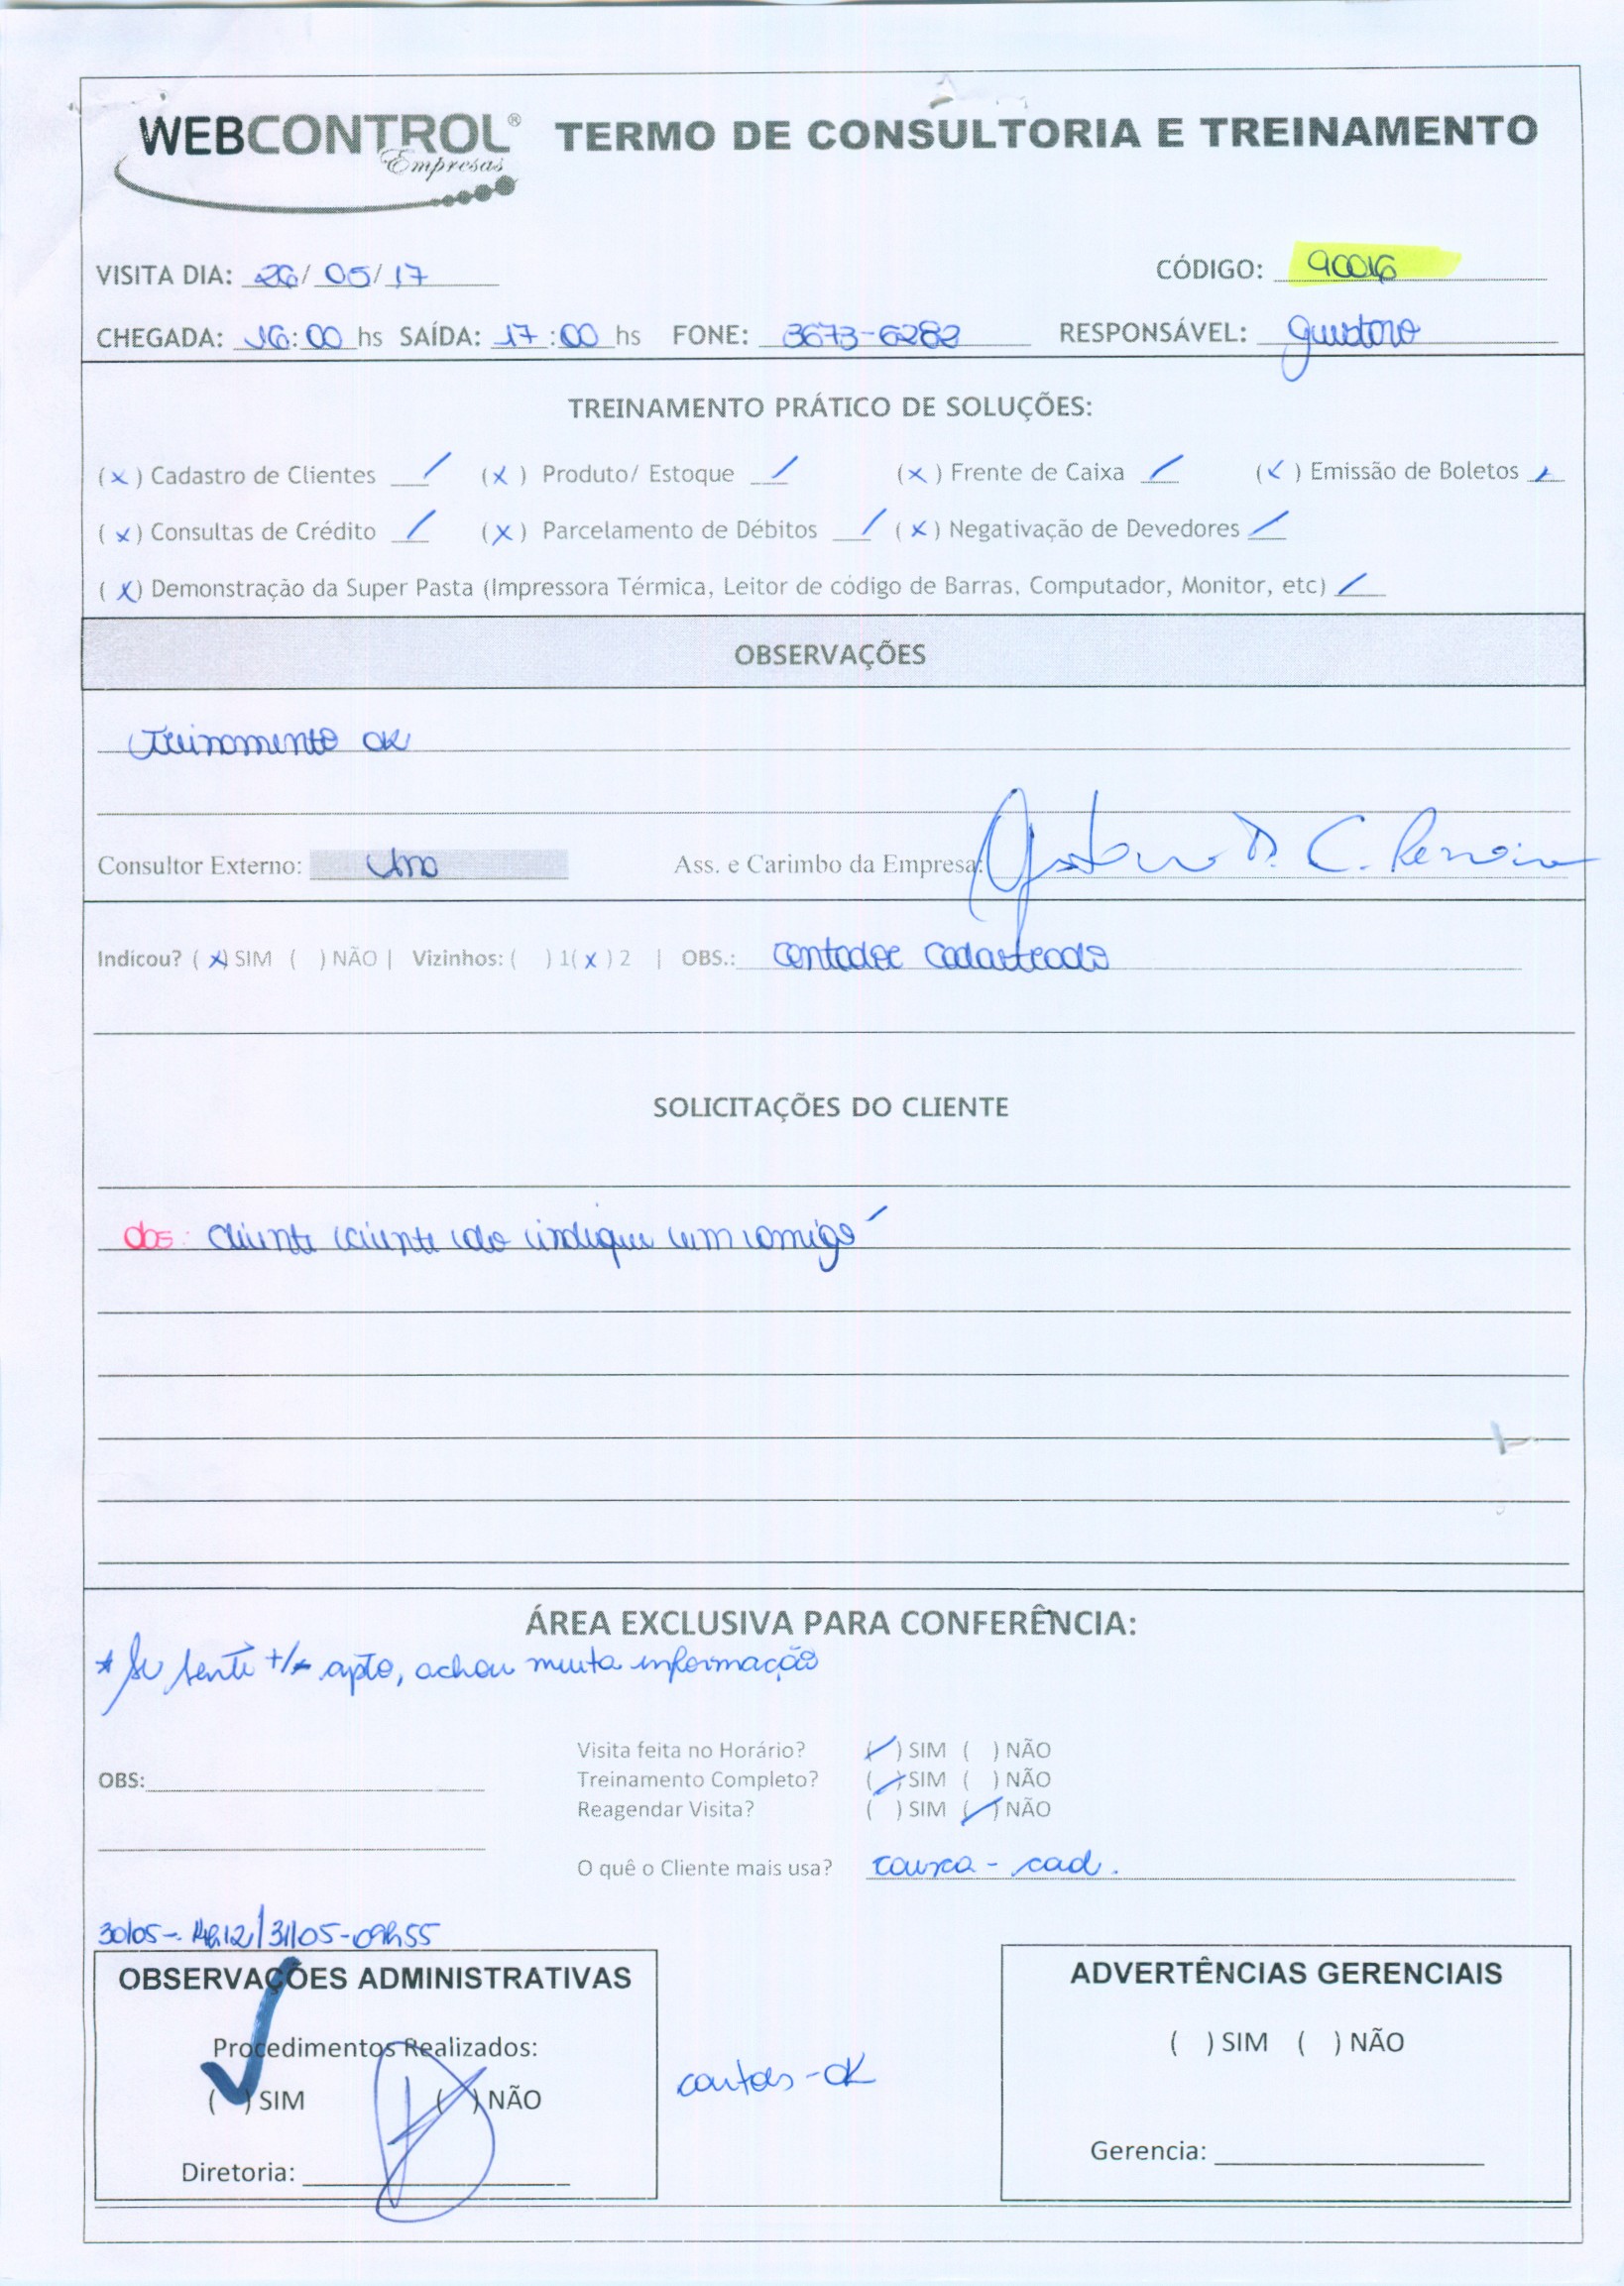 WEBCONTROL® Empresas TERMO DE CONSULTORIA E TREINAMENTO
VISITA DIA: 26/ 05/ 17 CÓDIGO: 90016
CHEGADA: 16:00 hs SAÍDA: 17:00 hs FONE: 3673-6282 RESPONSÁVEL: Gustavo
TREINAMENTO PRÁTICO DE SOLUÇÕES:
(x) Cadastro de Clientes (x) Produto/ Estoque (x) Frente de Caixa (x) Emissão de Boletos
(x) Consultas de Crédito (x) Parcelamento de Débitos (x) Negativação de Devedores
(x) Demonstração da Super Pasta (Impressora Térmica, Leitor de código de Barras, Computador, Monitor, etc)
OBSERVAÇÕES
Treinamento ok
Consultor Externo: Ass. e Carimbo da Empresa: Gustavo D. C. Ferreira
Indicou? (x) SIM ( ) NÃO | Vizinhos: ( ) 1(x) 2 | OBS.: contador cadastrado
SOLICITAÇÕES DO CLIENTE
obs: cliente ciente do indique um amigo
ÁREA EXCLUSIVA PARA CONFERÊNCIA:
* Se sente +/- apto, achou muita informação
Visita feita no Horário? (✓) SIM ( ) NÃO
OBS: Treinamento Completo? (✓) SIM ( ) NÃO
Reagendar Visita? ( ) SIM (✓) NÃO
O quê o Cliente mais usa? caixa - cad.
30/05-14h12/31/05-09h55
OBSERVAÇÕES ADMINISTRATIVAS ADVERTÊNCIAS GERENCIAIS
Procedimentos Realizados: ( ) SIM ( ) NÃO
(✓) SIM ( ) NÃO contas-OK
Diretoria: Gerencia: